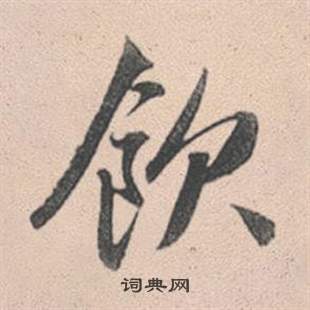 飲
词典网